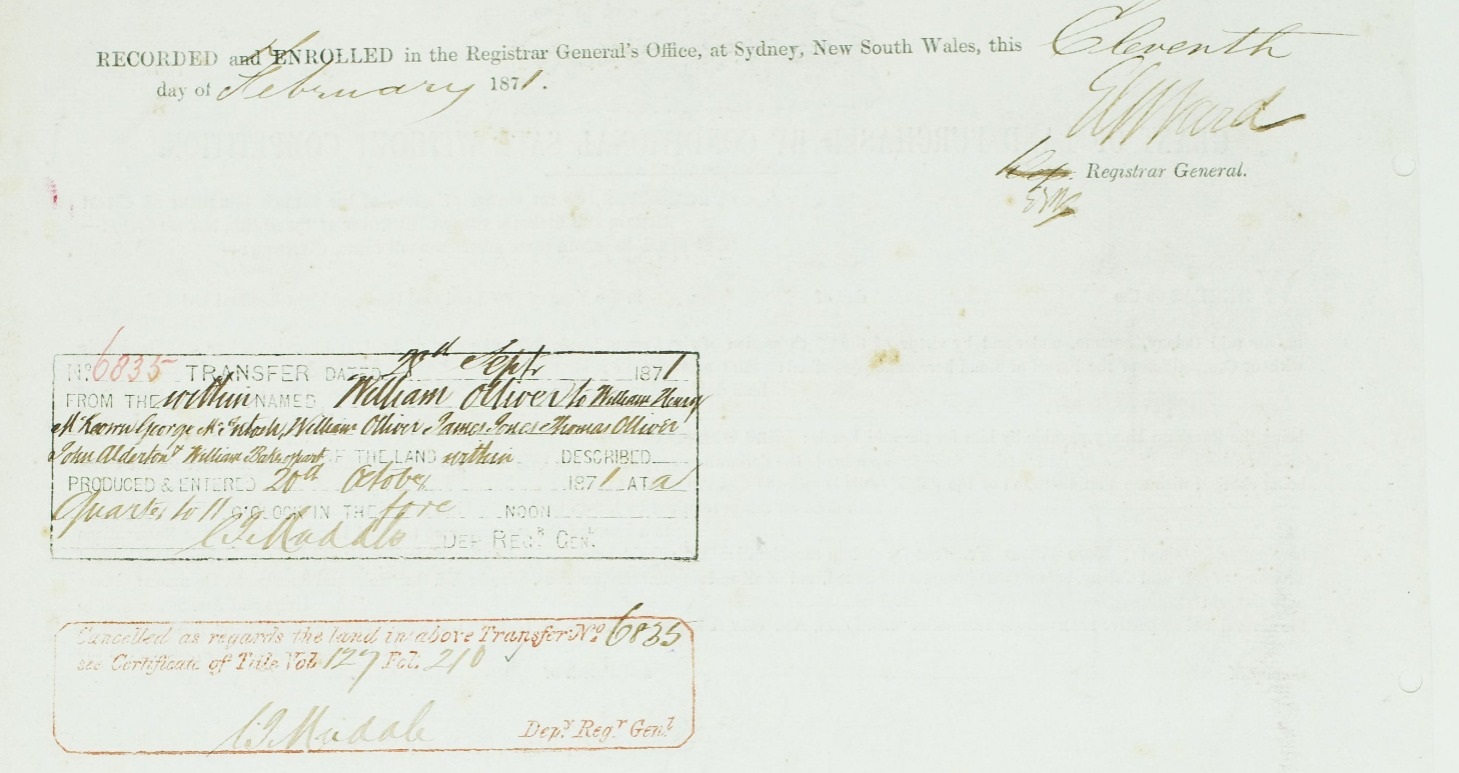 RECORDED and ENROLLED in the Registrar General's Office, at Sydney, New South Wales, this Eleventh
day of February 1871.
Registrar General.
No. 6835 TRANSFER DATED Sept. 1871
FROM THE within NAMED William Olliver to William Henry
McKeown George McIntosh, William Olliver James Jones Thomas Olliver
John Alderton & William OF THE LAND within DESCRIBED
PRODUCED & ENTERED 20th October 1871 AT a
Quarter to 11 O'CLOCK IN THE fore NOON
DEP REGR. GENL.
Cancelled as regards the land in above Transfer No. 6835
see Certificate of Title Vol. 127 Fol. 210
Depy. Regr. Genl.